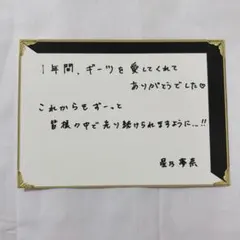 1年間、ギーツを愛してくれて
ありがとうでした♡
これからもずーっと
皆様の中で走り続けられますように...!!
星乃夢奈